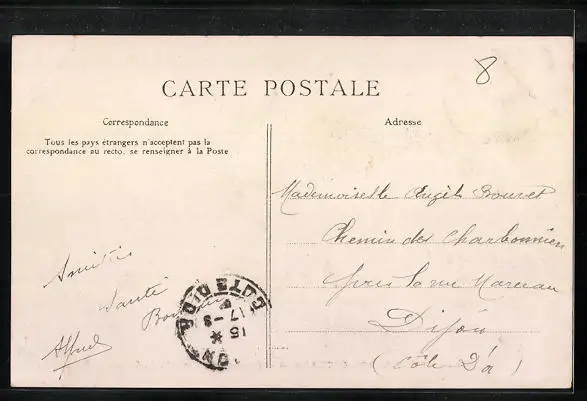 8
CARTE POSTALE
Correspondance
Adresse
Tous les pays étrangers n'acceptent pas la
correspondance au recto. se renseigner à la Poste
Mademoiselle Bouvet
Chemin des Charbonniers
près la rue Marceau
Dijon
(Côte D'or)
Amitiés
Santé
Alfred
CÔTE D'OR
17-8
15